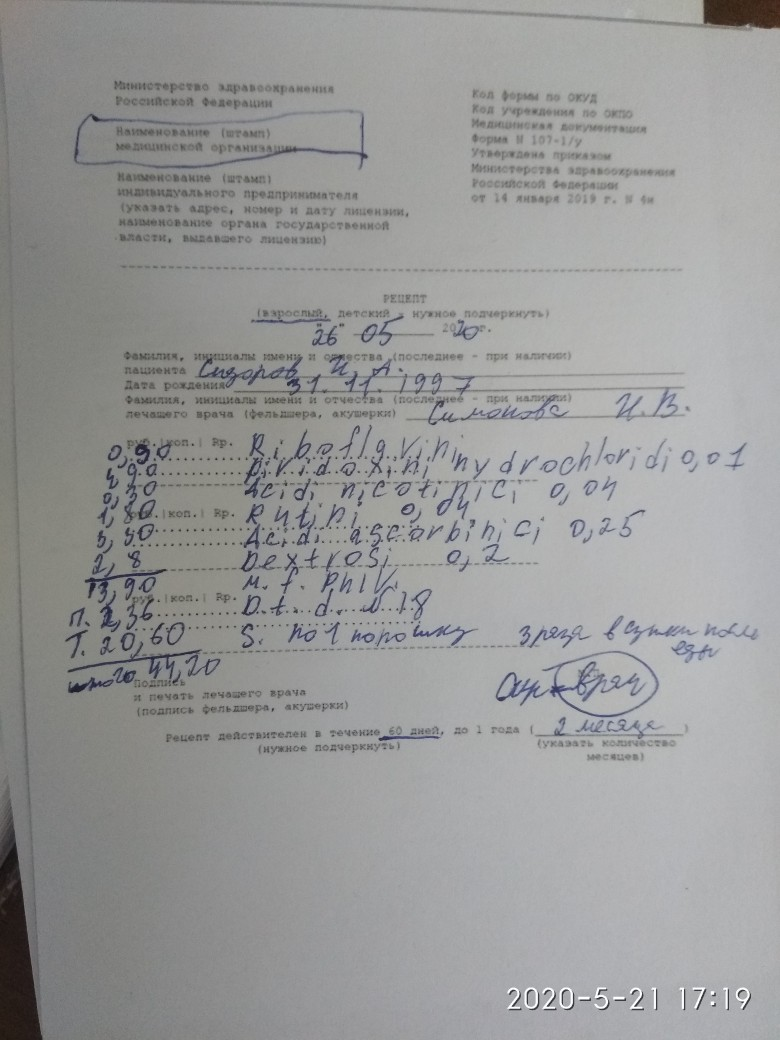 Министерство здравоохранения
Российской Федерации
Наименование (штамп)
медицинской организации
Наименование (штамп)
индивидуального предпринимателя
(указать адрес, номер и дату лицензии,
наименование органа государственной
власти, выдавшего лицензию)
Код формы по ОКУД
Код учреждения по ОКПО
Медицинская документация
Форма N 107-1/у
Утверждена приказом
Министерства здравоохранения
Российской Федерации
от 14 января 2019 г. N 4н
РЕЦЕПТ
(взрослый, детский - нужное подчеркнуть)
"26" 05 2020 г.
Фамилия, инициалы имени и отчества (последнее - при наличии)
пациента Сидоров И. А.
Дата рождения 31. 11. 1997
Фамилия, инициалы имени и отчества (последнее - при наличии)
лечащего врача (фельдшера, акушерки) Симонова И. В.
руб.|коп.| Rp.
0,90 Riboflavini
Piridoxini hydrochloridi 0,01
0,30 Acidi nicotinici 0,04
руб.|коп.| Rp.
1,80 Rutini 0,04
3,30 Acidi ascorbinici 0,25
2,8 Dextrosi 0,2
13,90 M. f. Pulv.
руб.|коп.| Rp.
П. 2,36 D. t. d. N 18
Т. 20,60 S. по 1 порошку 3 раза в сутки после
еды
итого 44,20
Подпись
и печать лечащего врача
(подпись фельдшера, акушерки)
врач
Рецепт действителен в течение 60 дней, до 1 года ( 2 месяца )
(нужное подчеркнуть)
(указать количество
месяцев)
2020-5-21 17:19